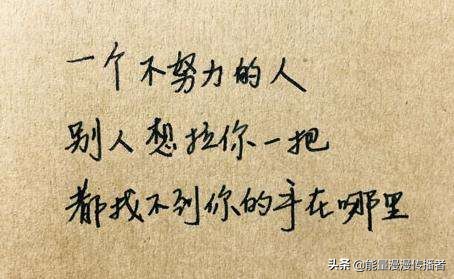 一个不努力的人
别人想拉你一把
都找不到你的手在哪里
头条 @能量漫漫传播者